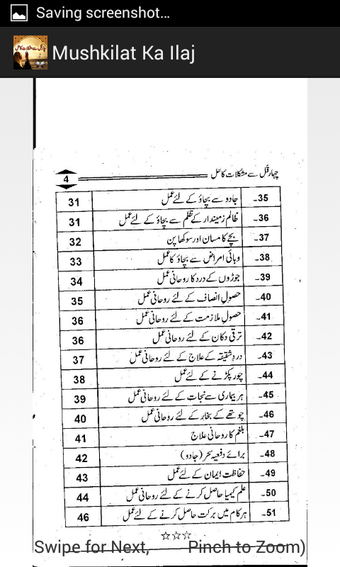 Saving screenshot...
Mushkilat Ka Ilaj
چہار قل سے مشکلات کا حل 4
35۔ جادو سے بچاؤ کے لئے عمل 31
36۔ ظالم زمیندار کے ظلم سے بچاؤ کے لئے عمل 31
37۔ بچے کا مسان اور سوکھا پن 32
38۔ وبائی امراض سے بچاؤ کا عمل 33
39۔ جوڑوں کے درد کا روحانی عمل 34
40۔ حصول انصاف کے لئے روحانی عمل 35
41۔ حصول ملازمت کے لئے روحانی عمل 36
42۔ ترقی دکان کے لئے روحانی عمل 36
43۔ درد شقیقہ کے علاج کے لئے روحانی عمل 37
44۔ چور پکڑنے کے لئے عمل 38
45۔ ہر بیماری سے نجات کے لئے روحانی عمل 39
46۔ چوتھے کے بخار کے لئے روحانی عمل 40
47۔ بلغم کا روحانی علاج 41
48۔ برائے دفعیہ سحر (جادو) 42
49۔ حفاظت ایمان کے لئے عمل 43
50۔ علم کیمیا حاصل کرنے کے لئے روحانی عمل 44
51۔ ہر کام میں برکت حاصل کرنے کے لئے عمل 46
☆☆☆
Swipe for Next, Pinch to Zoom)